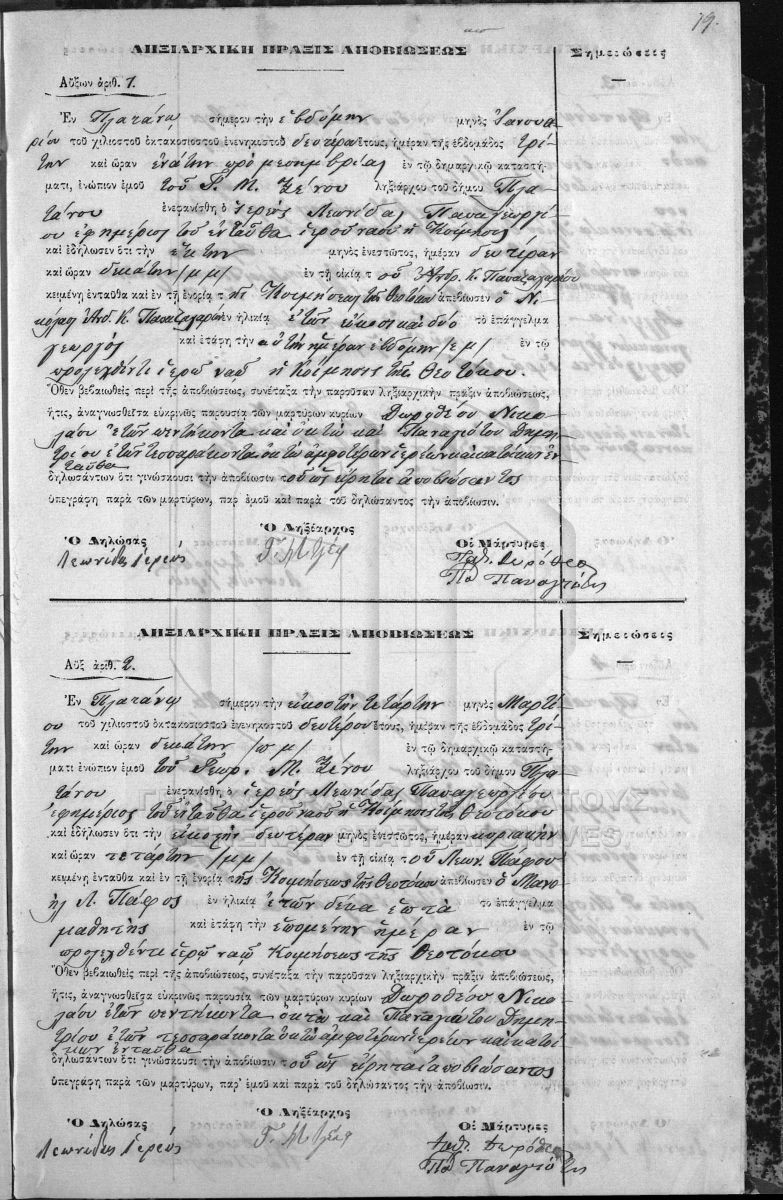 19.
ΛΗΞΙΑΡΧΙΚΗ ΠΡΑΞΙΣ ΑΠΟΒΙΩΣΕΩΣ
Σημειώσεις
Αὔξων ἀριθ. 1.
Ἐν Πλατάνῳ σήμερον τὴν ἑβδόμην μηνὸς Ἰανουα-
ρίου τοῦ χιλιοστοῦ ὀκτακοσιοστοῦ ἐνενηκοστοῦ δευτέρου ἔτους, ἡμέραν τῆς ἑβδομάδος Τρί-
την καὶ ὥραν ἐνάτην πρὸ μεσημβρίας ἐν τῷ δημαρχικῷ καταστή-
ματι, ἐνώπιον ἐμοῦ τοῦ Γ. Μ. Ξένου ληξιάρχου τοῦ δήμου Πλα-
τάνου ἐνεφανίσθη ὁ ἱερεὺς Λεωνίδας Παπαγεωργί-
ου ἐφημέριος τοῦ ἐνταῦθα ἱεροῦ ναοῦ ἡ Κοίμησις
καὶ ἐδήλωσεν ὅτι τὴν ἕκτην μηνὸς ἐνεστῶτος, ἡμέραν δευτέραν
καὶ ὥραν δεκάτην /μμ/ ἐν τῇ οἰκίᾳ τοῦ Ἀνδρ. Κ.
κειμένῃ ἐνταῦθα καὶ ἐν τῇ ἐνορίᾳ τῆς Κοιμήσεως τῆς Θεοτόκου ἀπεβίωσεν ὁ Ν-
κόλαος Ἀνδ. Κ. ἐν ἡλικίᾳ ἐτῶν εἴκοσι καὶ δύο τὸ ἐπάγγελμα
γεωργὸς καὶ ἐτάφη τὴν αὐτὴν ἡμέραν ἑβδόμην /ε μ/ ἐν τῷ
προλεχθέντι ἱερῷ ναῷ ἡ Κοίμησις τῆς Θεοτόκου.
Ὅθεν βεβαιωθεὶς περὶ τῆς ἀποβιώσεως, συνέταξα τὴν παροῦσαν ληξιαρχικὴν πρᾶξιν ἀποβιώσεως,
ἥτις, ἀναγνωσθεῖσα εὐκρινῶς παρουσίᾳ τῶν μαρτύρων κυρίων Δωροθέου Νικο-
λάου ἐτῶν πεντήκοντα καὶ ὀκτὼ καὶ Παναγιώτου Δημη-
τρίου ἐτῶν τεσσαράκοντα ὀκτὼ ἀμφοτέρων ἱερέων καὶ κατοίκων ἐν
ταῦθα
δηλωσάντων ὅτι γινώσκουσι τὴν ἀποβίωσιν τοῦ ὡς εἴρηται ἀποβιώσαντος
ὑπεγράφη παρὰ τῶν μαρτύρων, παρ' ἐμοῦ καὶ παρὰ τοῦ δηλώσαντος τὴν ἀποβίωσιν.
Ὁ Δηλώσας Ὁ Ληξίαρχος Οἱ Μάρτυρες
Λεωνίδας ἱερεὺς Γ. Μ. Ξένος Δωρόθεος
Παναγιώτης
ΛΗΞΙΑΡΧΙΚΗ ΠΡΑΞΙΣ ΑΠΟΒΙΩΣΕΩΣ
Σημειώσεις
Αὔξ ἀριθ. 2.
Ἐν Πλατάνῳ σήμερον τὴν εἰκοστὴν τετάρτην μηνὸς Μαρτί-
ου τοῦ χιλιοστοῦ ὀκτακοσιοστοῦ ἐνενηκοστοῦ δευτέρου ἔτους, ἡμέραν τῆς ἑβδομάδος Τρί-
την καὶ ὥραν δεκάτην /π μ/ ἐν τῷ δημαρχικῷ καταστή-
ματι ἐνώπιον ἐμοῦ τοῦ Γεωρ. Μ. Ξένου ληξιάρχου τοῦ δήμου Πλα-
τάνου ἐνεφανίσθη ὁ ἱερεὺς Λεωνίδας Παπαγεωργίου
ἐφημέριος τοῦ ἐνταῦθα ἱεροῦ ναοῦ ἡ Κοίμησις τῆς Θεοτόκου
καὶ ἐδήλωσεν ὅτι τὴν εἰκοστὴν δευτέραν μηνὸς ἐνεστῶτος, ἡμέραν κυριακὴν
καὶ ὥραν τετάρτην /μ μ/ ἐν τῇ οἰκίᾳ τοῦ Λεων. Πάφου
κειμένῃ ἐνταῦθα καὶ ἐν τῇ ἐνορίᾳ τῆς Κοιμήσεως τῆς Θεοτόκου ἀπεβίωσεν ὁ Μανο-
ὴλ Λ. Πάφος ἐν ἡλικίᾳ ἐτῶν δέκα ἑπτὰ τὸ ἐπάγγελμα
μαθητὴς καὶ ἐτάφη τὴν ἑπομένην ἡμέραν ἐν τῷ
προλεχθέντι ἱερῷ ναῷ Κοιμήσεως τῆς Θεοτόκου
Ὅθεν βεβαιωθεὶς περὶ τῆς ἀποβιώσεως, συνέταξα τὴν παροῦσαν ληξιαρχικὴν πρᾶξιν ἀποβιώσεως,
ἥτις, ἀναγνωσθεῖσα εὐκρινῶς παρουσίᾳ τῶν μαρτύρων κυρίων Δωροθέου Νικο-
λάου ἐτῶν πεντήκοντα ὀκτὼ καὶ Παναγιώτου Δημη-
τρίου ἐτῶν τεσσαράκοντα ὀκτὼ ἀμφοτέρων ἱερέων καὶ κατοί
κων ἐνταῦθα
δηλωσάντων ὅτι γινώσκουσι τὴν ἀποβίωσιν τοῦ ὡς εἴρηται ἀποβιώσαντος
ὑπεγράφη παρὰ τῶν μαρτύρων, παρ' ἐμοῦ καὶ παρὰ τοῦ δηλώσαντος τὴν ἀποβίωσιν.
Ὁ Δηλώσας Ὁ Ληξίαρχος Οἱ Μάρτυρες
Λεωνίδας ἱερεὺς Γ. Μ. Ξένος Δωρόθεος
Παναγιώτης